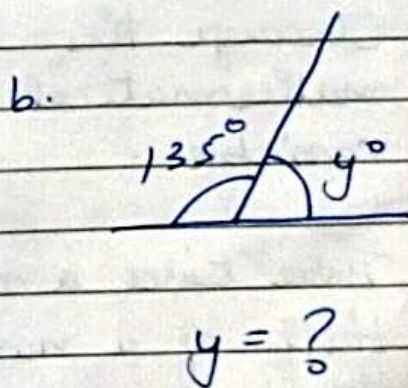 b.
135° y°
y = ?